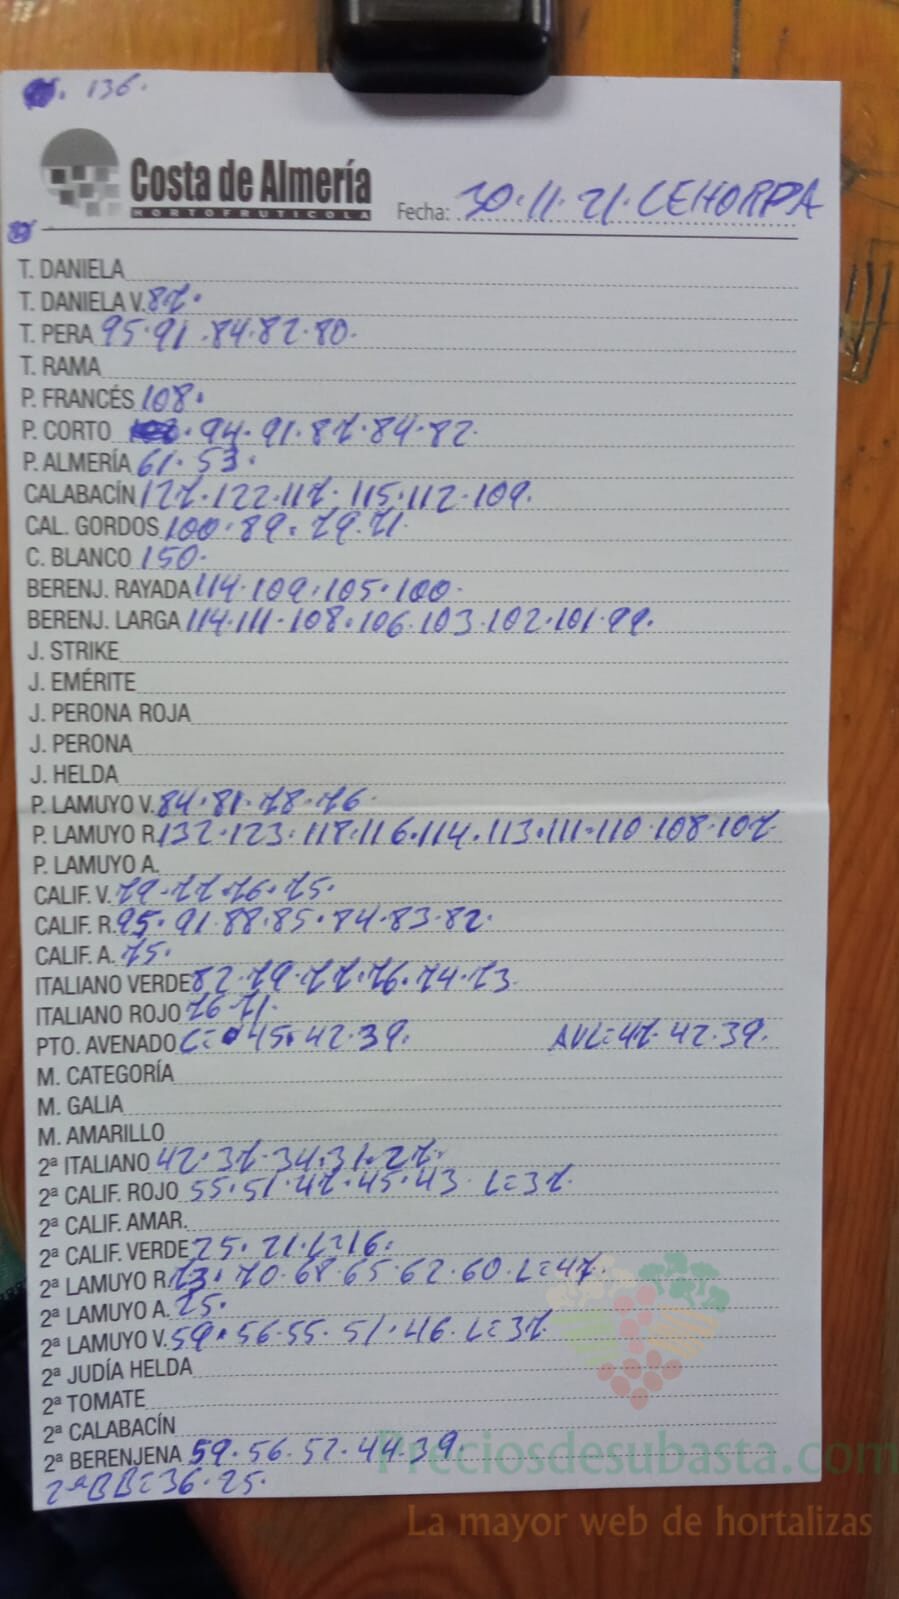 136.
Costa de Almería
HORTOFRUTICOLA
Fecha: 30.11.21. CEHORPA
T. DANIELA
T. DANIELA V. 87.
T. PERA 95.91.84.82.80.
T. RAMA
P. FRANCÉS 108.
P. CORTO 94.91.87.84.82.
P. ALMERÍA 61.53.
CALABACÍN 127.122.117.115.112.109.
CAL. GORDOS 100.89.79.71.
C. BLANCO 150.
BERENJ. RAYADA 114.109.105.100.
BERENJ. LARGA 114.111.108.106.103.102.101.99.
J. STRIKE
J. EMÉRITE
J. PERONA ROJA
J. PERONA
J. HELDA
P. LAMUYO V. 84.81.78.76.
P. LAMUYO R. 132.123.118.116.114.113.111.110.108.107
P. LAMUYO A.
CALIF. V. 79.77.76.75.
CALIF. R. 95.91.88.85.84.83.82.
CALIF. A. 75.
ITALIANO VERDE 82.79.77.76.74.73.
ITALIANO ROJO 76.71.
PTO. AVENADO C= 45.42.39. AVL=47.42.39.
M. CATEGORÍA
M. GALIA
M. AMARILLO
2ª ITALIANO 42.37.34.31.27.
2ª CALIF. ROJO 55.51.47.45.43. L=37.
2ª CALIF. AMAR.
2ª CALIF. VERDE 25.21.L=16.
2ª LAMUYO R. 73.70.68.65.62.60.L=47.
2ª LAMUYO A. 25.
2ª LAMUYO V. 59.56.55.51.46.L=37.
2ª JUDÍA HELDA
2ª TOMATE
2ª CALABACÍN
2ª BERENJENA 59.56.52.44.39.
2ªBB=36.25.
Preciosdesubasta.com
La mayor web de hortalizas